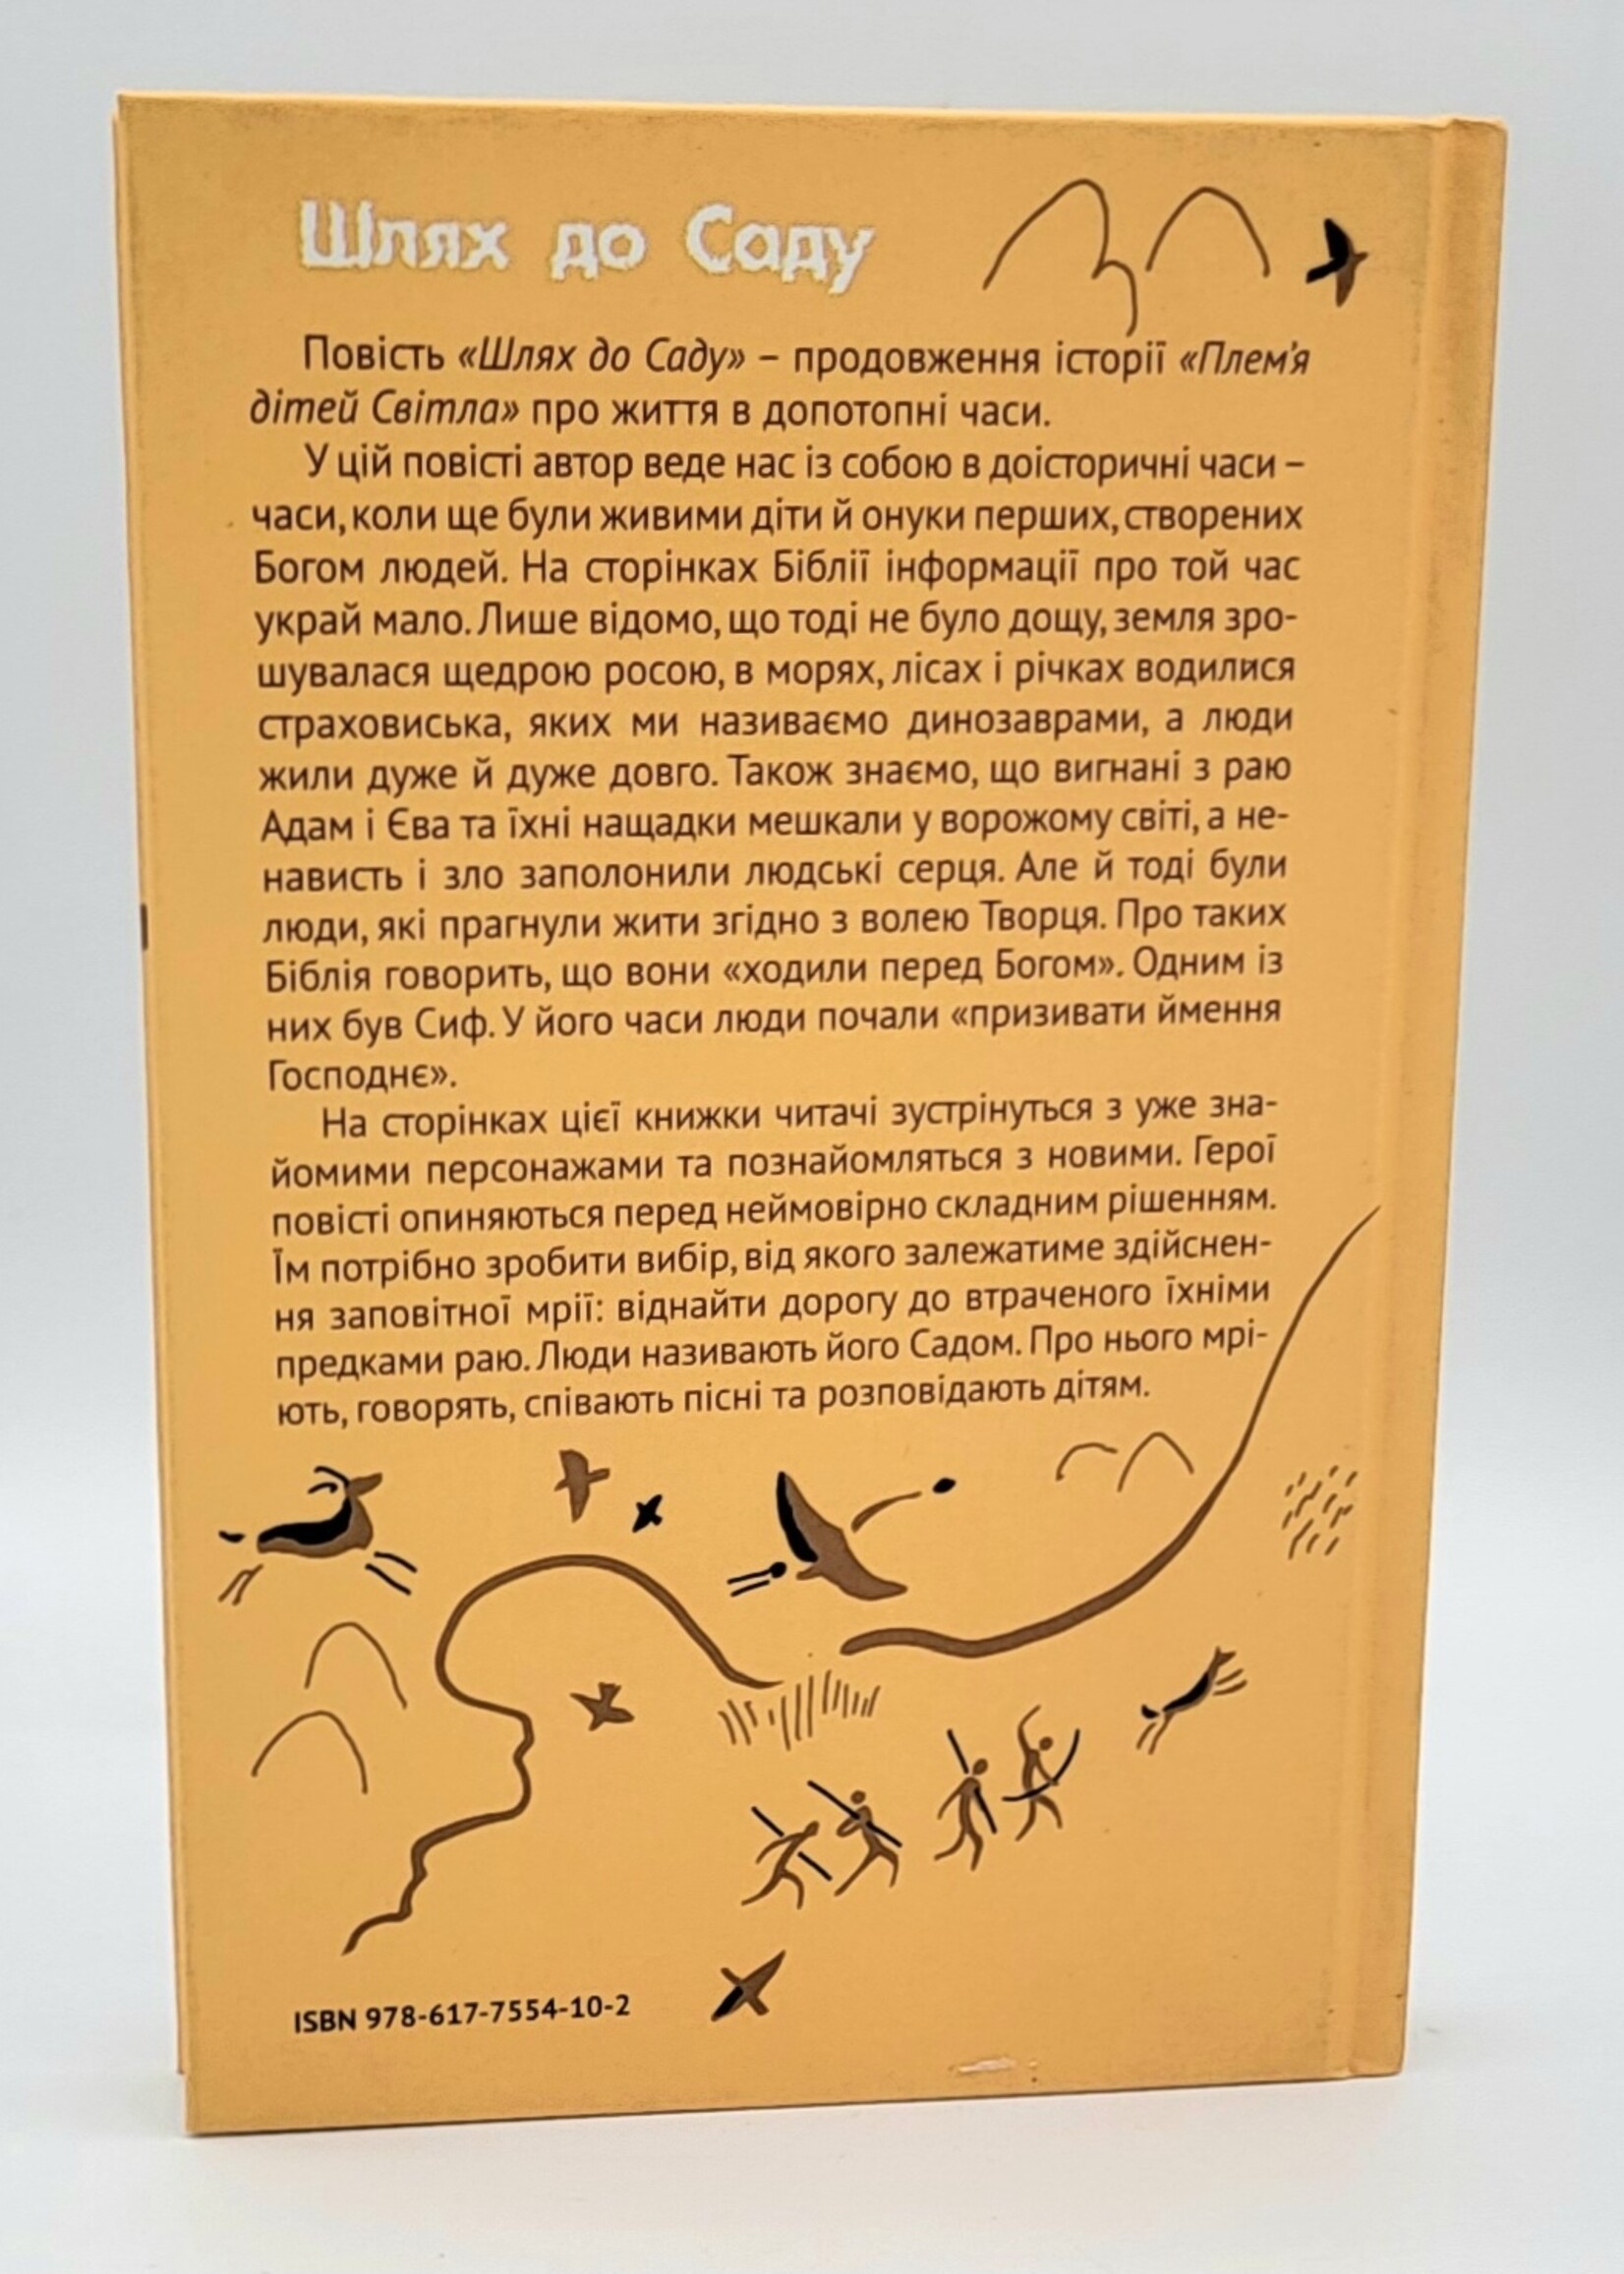 Шлях до Саду
Повість «Шлях до Саду» – продовження історії «Плем'я
дітей Світла» про життя в допотопні часи.
У цій повісті автор веде нас із собою в доісторичні часи –
часи, коли ще були живими діти й онуки перших, створених
Богом людей. На сторінках Біблії інформації про той час
украй мало. Лише відомо, що тоді не було дощу, земля зро-
шувалася щедрою росою, в морях, лісах і річках водилися
страховиська, яких ми називаємо динозаврами, а люди
жили дуже й дуже довго. Також знаємо, що вигнані з раю
Адам і Єва та їхні нащадки мешкали у ворожому світі, а не-
нависть і зло заполонили людські серця. Але й тоді були
люди, які прагнули жити згідно з волею Творця. Про таких
Біблія говорить, що вони «ходили перед Богом». Одним із
них був Сиф. У його часи люди почали «призивати ймення
Господнє».
На сторінках цієї книжки читачі зустрінуться з уже зна-
йомими персонажами та познайомляться з новими. Герої
повісті опиняються перед неймовірно складним рішенням.
Їм потрібно зробити вибір, від якого залежатиме здійснен-
ня заповітної мрії: віднайти дорогу до втраченого їхніми
предками раю. Люди називають його Садом. Про нього мрі-
ють, говорять, співають пісні та розповідають дітям.
ISBN 978-617-7554-10-2